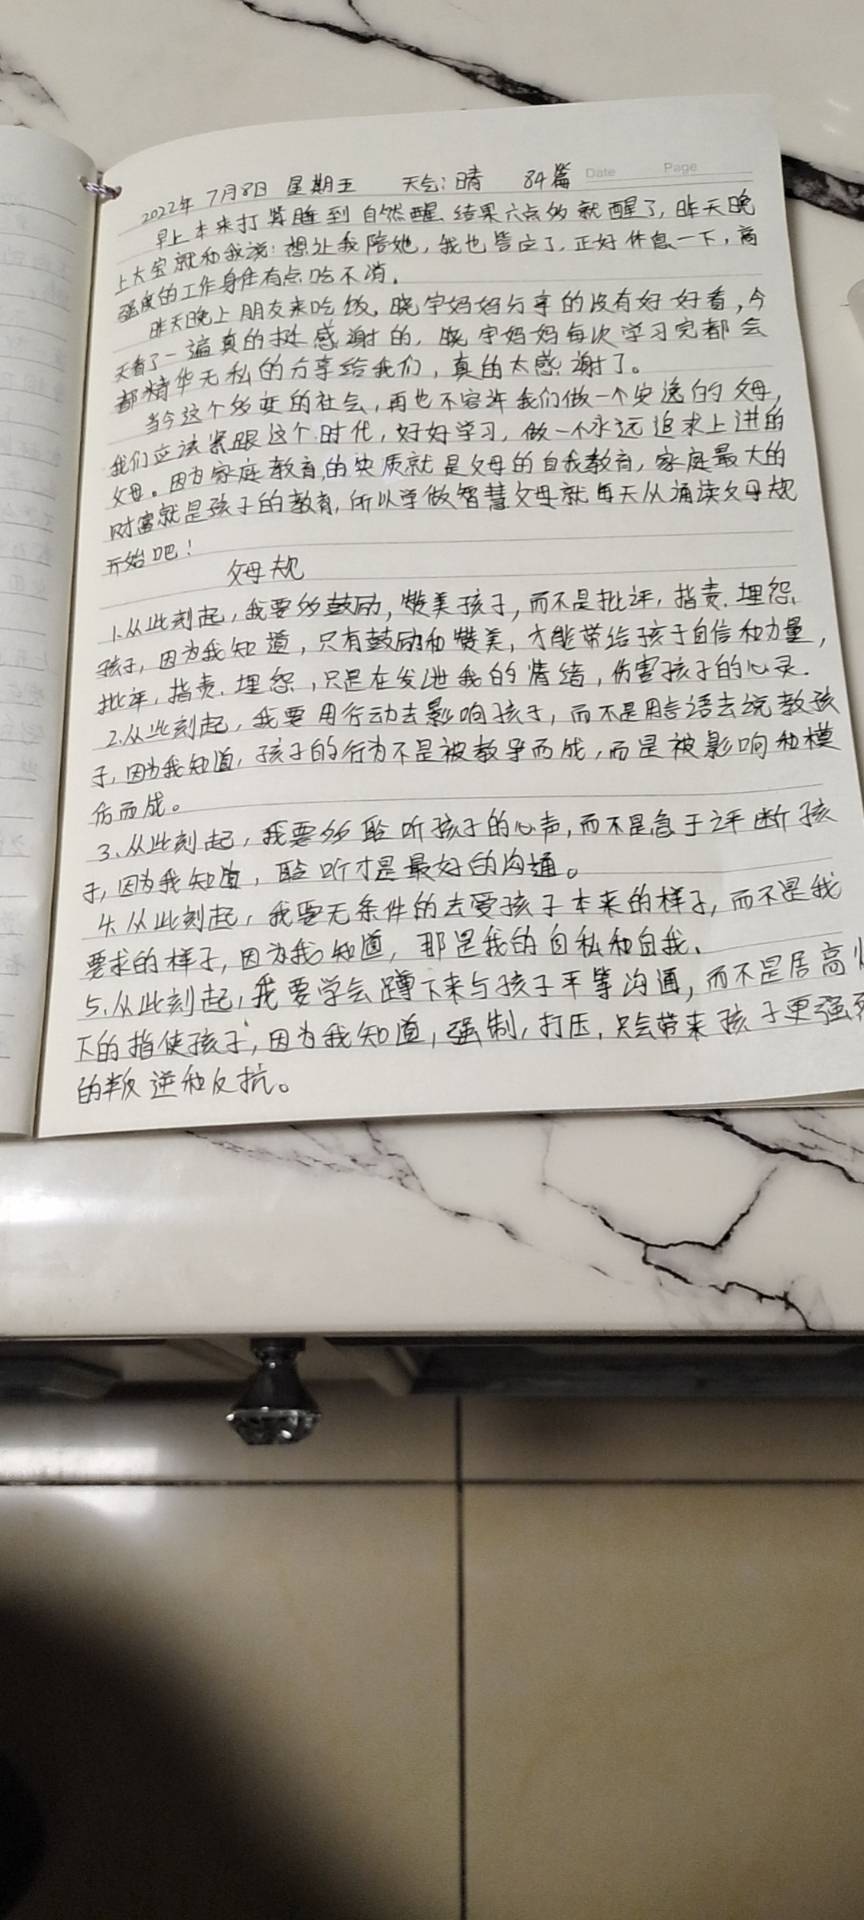 2022年 7月8日 星期五 天气:晴 84篇 Date Page
早上本来打算睡到自然醒,结果六点多就醒了,昨天晚
上大宝就和我说:想让我陪她,我也答应了,正好休息一下,高
强度的工作身体有点吃不消.
昨天晚上朋友来吃饭,晓宇妈妈分享的没有好好看,今
天看了一遍真的挺感谢的,晓宇妈妈每次学习完都会
都精华无私的分享给我们,真的太感谢了。
当今这个多变的社会,再也不容许我们做一个安逸的父母,
我们应该紧跟这个时代,好好学习,做一个永远追求上进的
父母。因为家庭教育的实质就是父母的自我教育,家庭最大的
财富就是孩子的教育,所以学做智慧父母就每天从诵读父母规
开始吧!
父母规
1.从此刻起,我要多鼓励,赞美孩子,而不是批评,指责.埋怨.
孩子,因为我知道,只有鼓励和赞美,才能带给孩子自信和力量,
批评,指责.埋怨,只是在发泄我的情绪,伤害孩子的心灵.
2.从此刻起,我要用行动去影响孩子,而不是用言语去说教孩
子,因为我知道,孩子的行为不是被教导而成,而是被影响和模
仿而成。
3.从此刻起,我要多聆听孩子的心声,而不是急于评断孩
子,因为我知道,聆听才是最好的沟通。
4.从此刻起,我要无条件的去爱孩子本来的样子,而不是我
要求的样子,因为我知道,那是我的自私和自我.
5.从此刻起,我要学会蹲下来与孩子平等沟通,而不是居高
下的指使孩子,因为我知道,强制,打压,只会带来孩子更强
的叛逆和反抗。